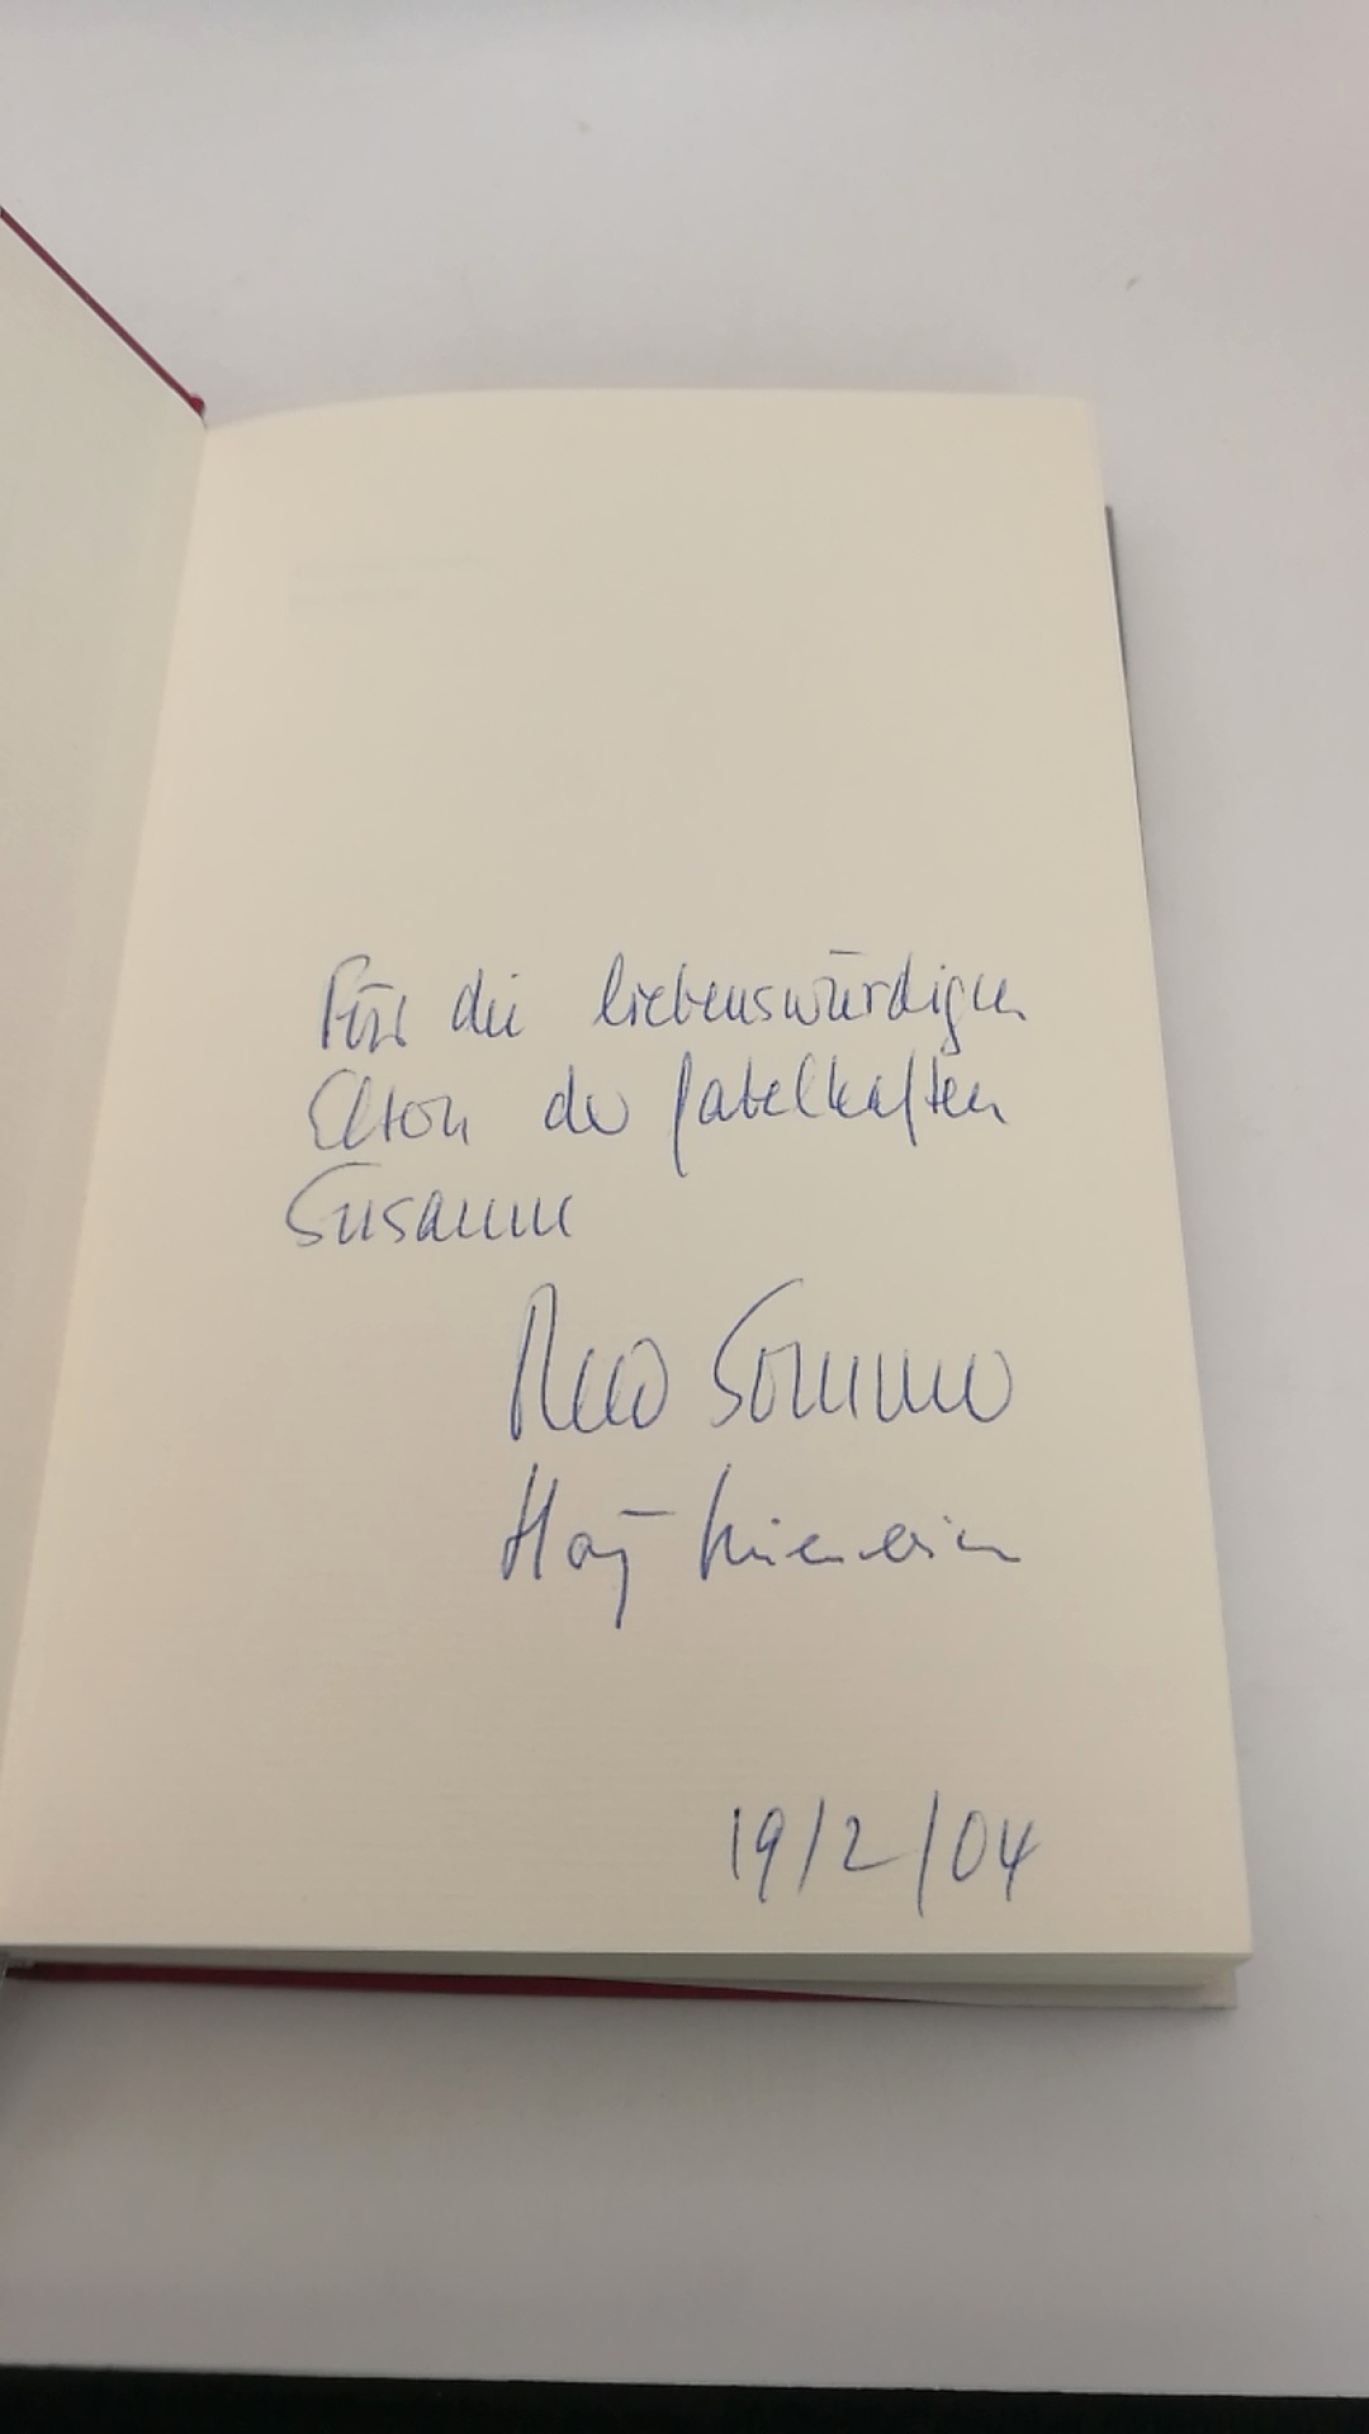 Für die liebenswürdigen
Eltern der fabelhaften
Susanne
Theo Sommer
19/2/04